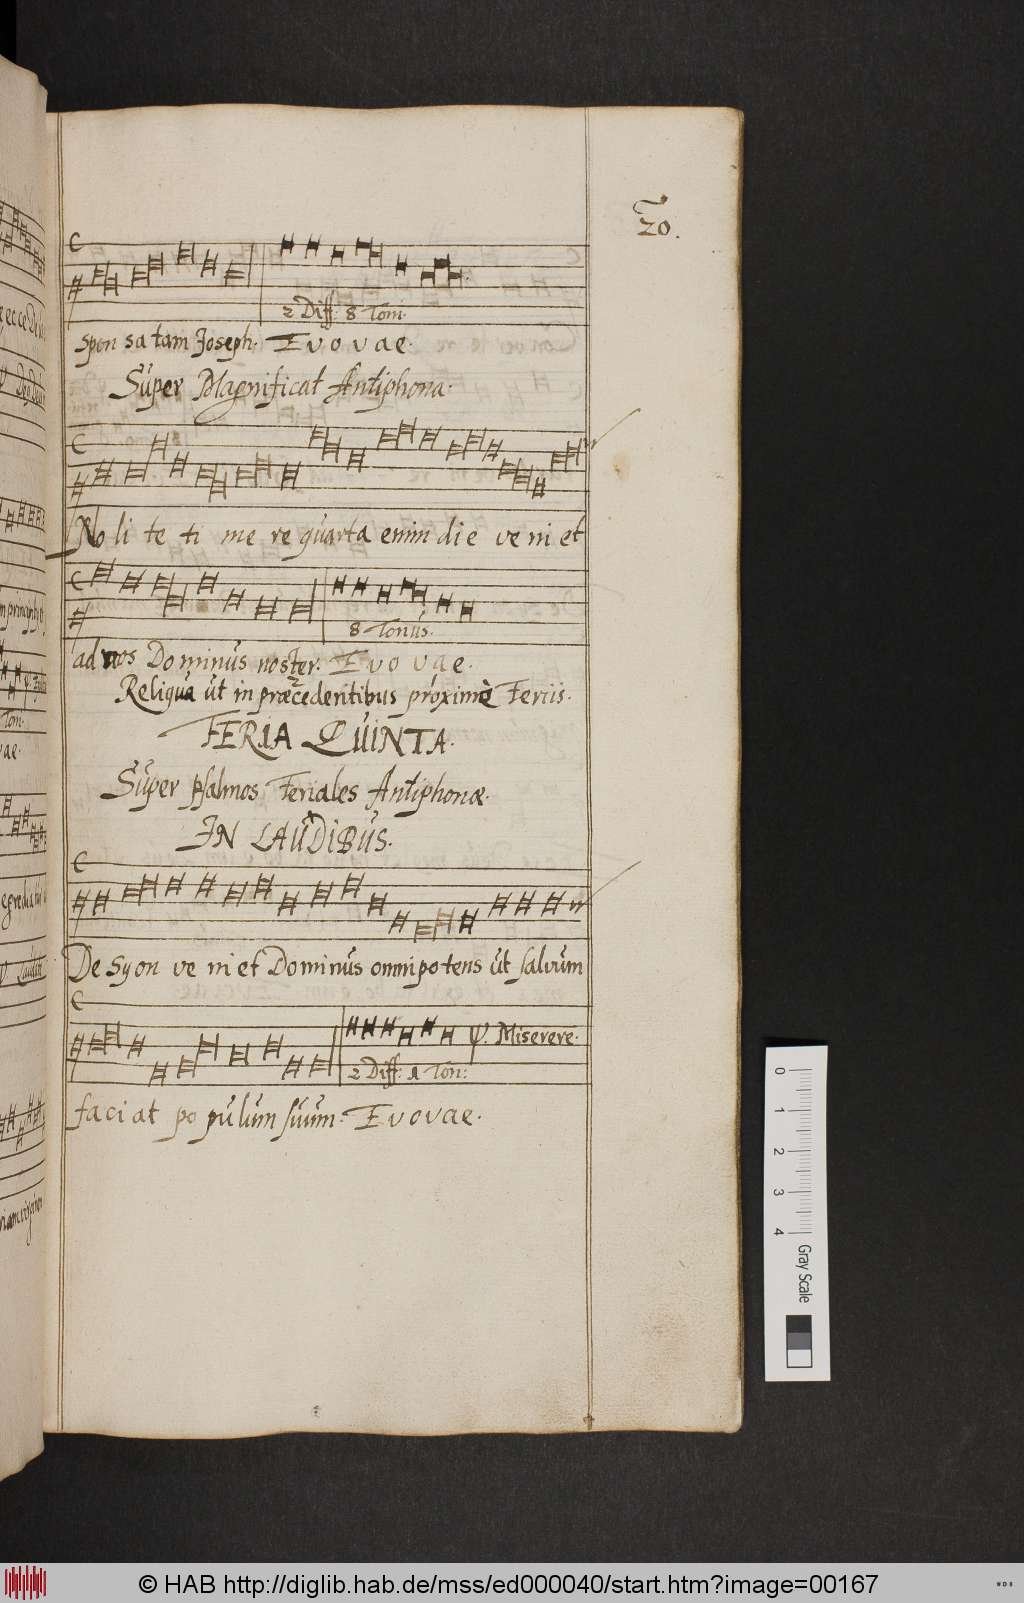 20.
2 Diff: 8 Toni.
spon sa tam Joseph. Evovae.
Super Magnificat Antiphona.
No li te ti me re quarta enim di e ve ni et
8 Tonus.
ad nos Dominus noster. Evovae.
Reliqua ut in præcedentibus proximè Feriis.
FERIA QUINTA.
Super Psalmos Feriales Antiphonæ.
IN LAUDIBUS.
De Syon ve ni et Dominus omnipotens ut salvum
Miserere.
2 Diff: 1 Ton:
faciat po pulum suum. Evovae.
0 1 2 3 4 Gray Scale
© HAB http://diglib.hab.de/mss/ed000040/start.htm?image=00167